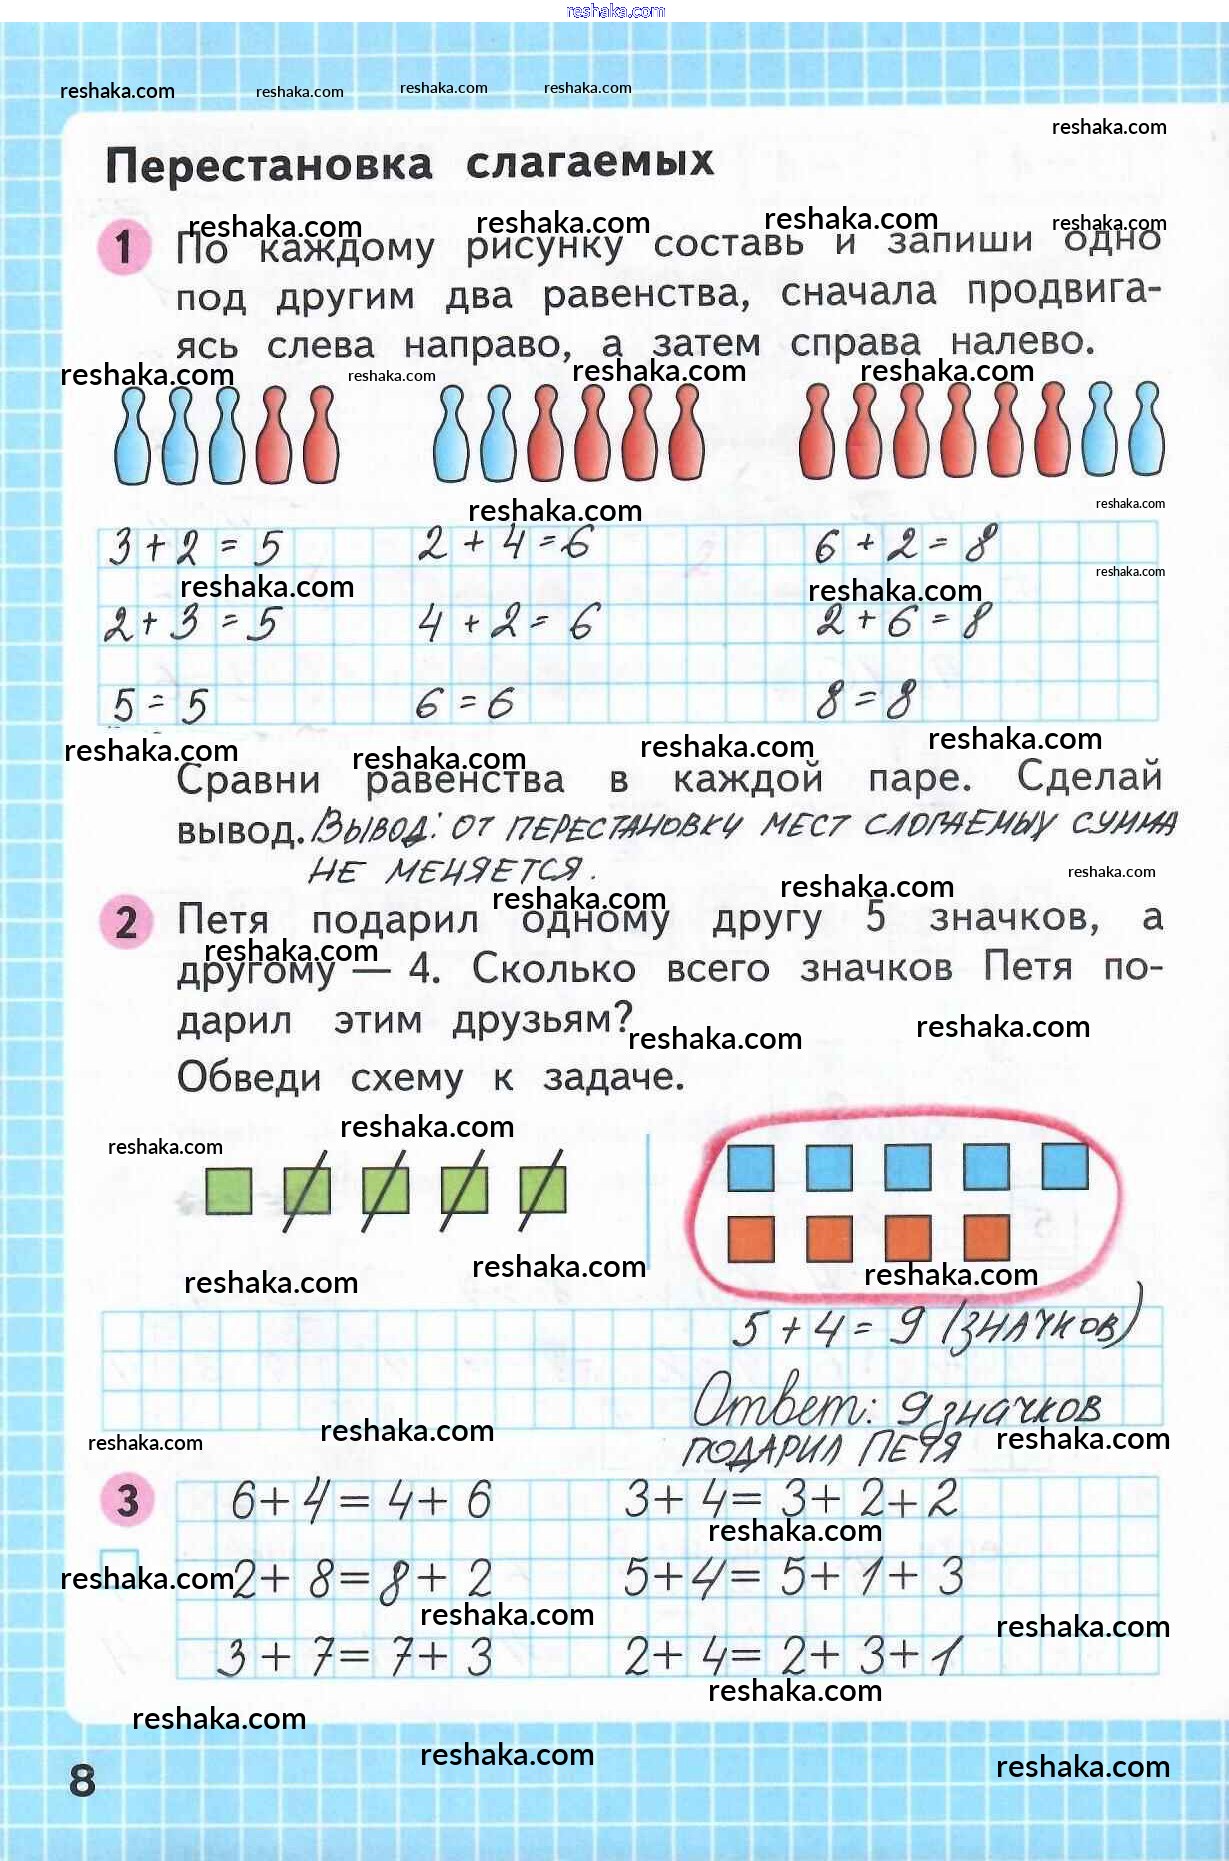 reshaka.com
reshaka.com reshaka.com reshaka.com reshaka.com
reshaka.com
Перестановка слагаемых
reshaka.com reshaka.com reshaka.com reshaka.com
1 По каждому рисунку составь и запиши одно
под другим два равенства, сначала продвига-
ясь слева направо, а затем справа налево.
reshaka.com reshaka.com reshaka.com reshaka.com
reshaka.com reshaka.com
3 + 2 = 5 2 + 4 = 6 6 + 2 = 8
reshaka.com reshaka.com reshaka.com
2 + 3 = 5 4 + 2 = 6 2 + 6 = 8
5 = 5 6 = 6 8 = 8
reshaka.com reshaka.com reshaka.com reshaka.com
Сравни равенства в каждой паре. Сделай
вывод. Вывод: от перестановки мест слогаемых сумма
не меняется.
reshaka.com
reshaka.com reshaka.com
2 Петя подарил одному другу 5 значков, а
reshaka.com
другому — 4. Сколько всего значков Петя по-
дарил этим друзьям?
reshaka.com reshaka.com
Обведи схему к задаче.
reshaka.com reshaka.com
reshaka.com reshaka.com reshaka.com
5 + 4 = 9 (значков)
Ответ: 9 значков
reshaka.com reshaka.com reshaka.com
подарил Петя
3 6 + 4 = 4 + 6 3 + 4 = 3 + 2 + 2
reshaka.com
reshaka.com 2 + 8 = 8 + 2 5 + 4 = 5 + 1 + 3
reshaka.com reshaka.com
3 + 7 = 7 + 3 2 + 4 = 2 + 3 + 1
reshaka.com
reshaka.com
reshaka.com reshaka.com
8